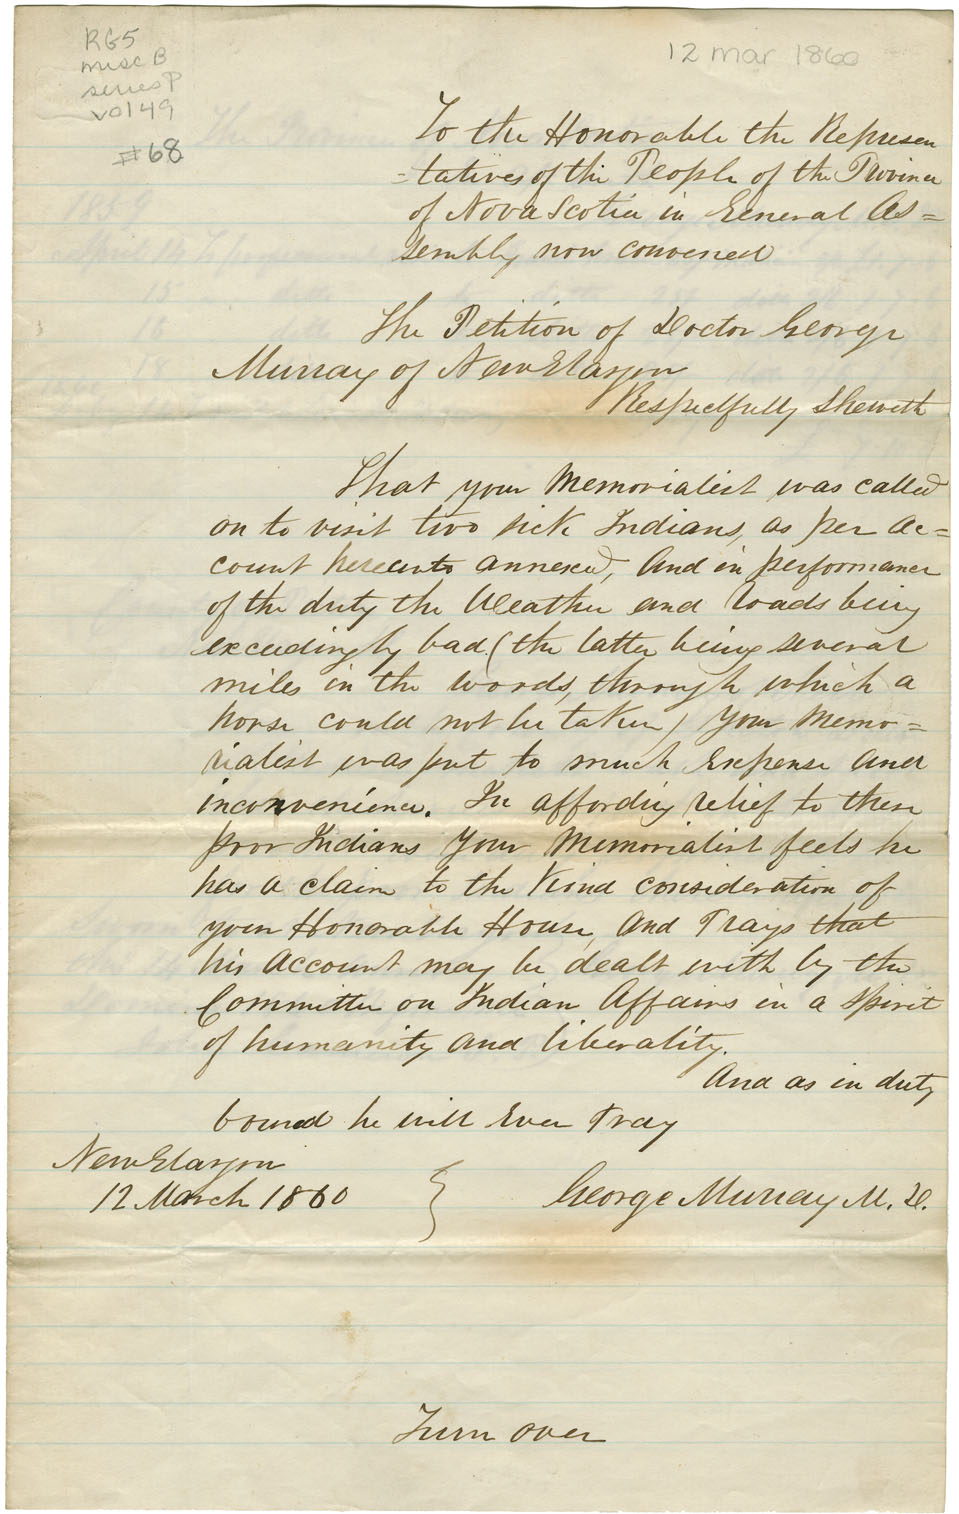 RG5
misc B
series P
vol 49
#68
12 mar 1860
To the Honorable the Represen
=tatives of the People of the Province
of Nova Scotia in General As=
sembly now convened
The Petition of Doctor George
Murray of New Glasgow
Respectfully Sheweth
That your Memorialist was called
on to visit two sick Indians, as per Ac=
count hereunto annexed, And in performance
of the duty the Weather and roads being
exceedingly bad (the latter being several
miles in the woods, through which a
horse could not be taken) Your Memo=
rialist was put to much Expense and
inconvenience. In affording relief to these
poor Indians Your Memorialist feels he
has a claim to the Kind consideration of
your Honorable House, And Prays that
his Account may be dealt with by the
Committee on Indian Affairs in a spirit
of humanity and liberality.
And as in duty
bound he will Ever Pray
New Glasgow
12 March 1860
George Murray M.D.
Turn over
1859
April
15
16
18